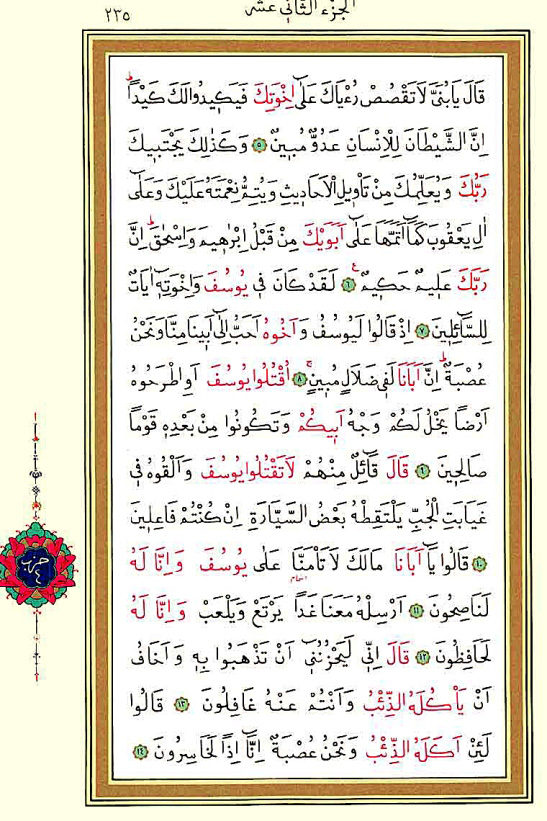 الجزء الثاني عشر
٢٣٥
قَالَ يَابُنَيَّ لَا تَقْصُصْ رُءْيَاكَ عَلٰٓى اِخْوَتِكَ فَيَكٖيدُوا لَكَ كَيْدًاؕ
اِنَّ الشَّيْطَانَ لِلْاِنْسَانِ عَدُوٌّ مُبٖينٌ ٥ وَكَذٰلِكَ يَجْتَبٖيكَ
رَبُّكَ وَيُعَلِّمُكَ مِنْ تَاْوٖيلِ الْاَحَادٖيثِ وَيُتِمُّ نِعْمَتَهُ عَلَيْكَ وَعَلٰٓى
اٰلِ يَعْقُوبَ كَمَٓا اَتَمَّهَا عَلٰٓى اَبَوَيْكَ مِنْ قَبْلُ اِبْرٰهٖيمَ وَاِسْحٰقَؕ اِنَّ
رَبَّكَ عَلٖيمٌ حَكٖيمٌ ٦ ع لَقَدْ كَانَ فٖي يُوسُفَ وَاِخْوَتِهٖٓ اٰيَاتٌ
لِلسَّٓائِلٖينَ ٧ اِذْ قَالُوا لَيُوسُفُ وَاَخُوهُ اَحَبُّ اِلٰٓى اَبٖينَا مِنَّا وَنَحْنُ
عُصْبَةٌؕ اِنَّ اَبَانَا لَفٖي ضَلَالٍ مُبٖينٍۚ ٨ اُقْتُلُوا يُوسُفَ اَوِ اطْرَحُوهُ
اَرْضًا يَخْلُ لَكُمْ وَجْهُ اَبٖيكُمْ وَتَكُونُوا مِنْ بَعْدِهٖ قَوْمًا
صَالِحٖينَ ٩ قَالَ قَٓائِلٌ مِنْهُمْ لَا تَقْتُلُوا يُوسُفَ وَاَلْقُوهُ فٖي
غَيَابَتِ الْجُبِّ يَلْتَقِطْهُ بَعْضُ السَّيَّارَةِ اِنْ كُنْتُمْ فَاعِلٖينَ
١٠ قَالُوا يَٓا اَبَانَا مَا لَكَ لَا تَاْمَنَّا عَلٰى يُوسُفَ وَاِنَّا لَهُ
اشمام
لَنَاصِحُونَ ١١ اَرْسِلْهُ مَعَنَا غَدًا يَرْتَعْ وَيَلْعَبْ وَاِنَّا لَهُ
لَحَافِظُونَ ١٢ قَالَ اِنّٖي لَيَحْزُنُنٖٓي اَنْ تَذْهَبُوا بِهٖ وَاَخَافُ
اَنْ يَاْكُلَهُ الذِّئْبُ وَاَنْتُمْ عَنْهُ غَافِلُونَ ١٣ قَالُوا
لَئِنْ اَكَلَهُ الذِّئْبُ وَنَحْنُ عُصْبَةٌ اِنَّٓا اِذًا لَخَاسِرُونَ ١٤
حزب
٤